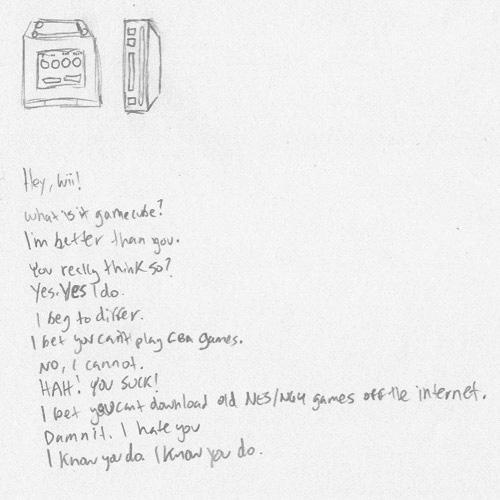 Hey, Wii!
what is it gamecube?
I'm better than you.
You really think so?
Yes. Yes I do.
I beg to differ.
I bet you can't play GBA games.
NO, I cannot.
HAH! YOU SUCK!
I bet you can't download old NES/N64 games off the internet.
Damnit. I hate you
I know you do. I know you do.